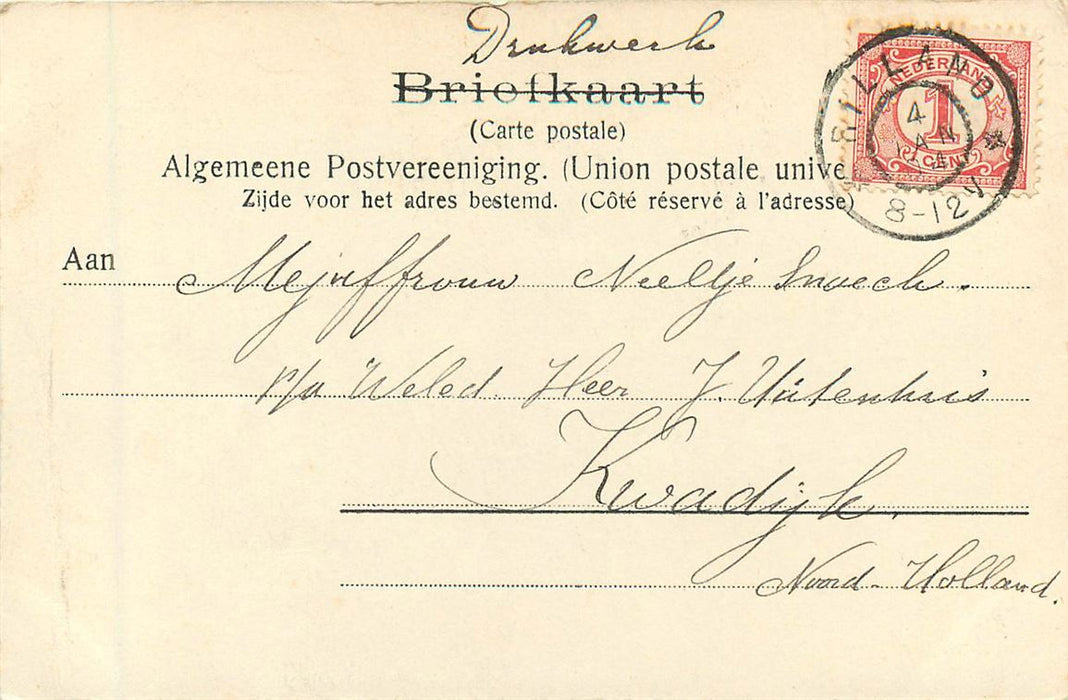 Drukwerk
Briefkaart
(Carte postale)
Algemeene Postvereeniging. (Union postale unive
Zijde voor het adres bestemd. (Côté réservé à l'adresse)
NEDERLAND
1
1 CENT
RILLAND
4
JAN
8-12 V
Aan Mejuffrouw Neeltje Snoeck.
p/a Weled. Heer J. Uitenhuis
Kwadijk.
Noord-Holland.